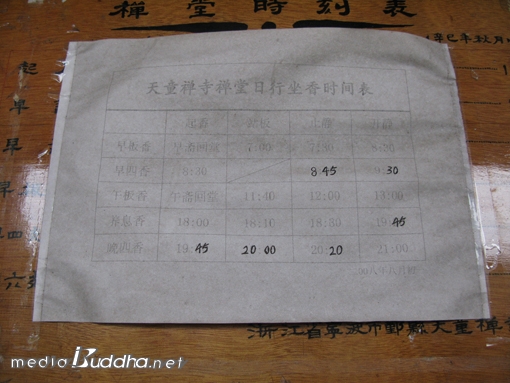 禪堂時刻表
辛巳年秋月
起
早
天童禅寺禅堂日行坐香时间表
起香 止静 开静
早板香 早斋回堂 7:00 7:30 8:30
早四香 8:30 8 45 9:30
午板香 午斋回堂 11:40 12:00 13:00
养息香 18:00 18:10 18:30 19:45
晚四香 19:45 20:00 20:20 21:00
早四
六
浙江省寧波市鄞縣天童禪
mediaBuddha.net